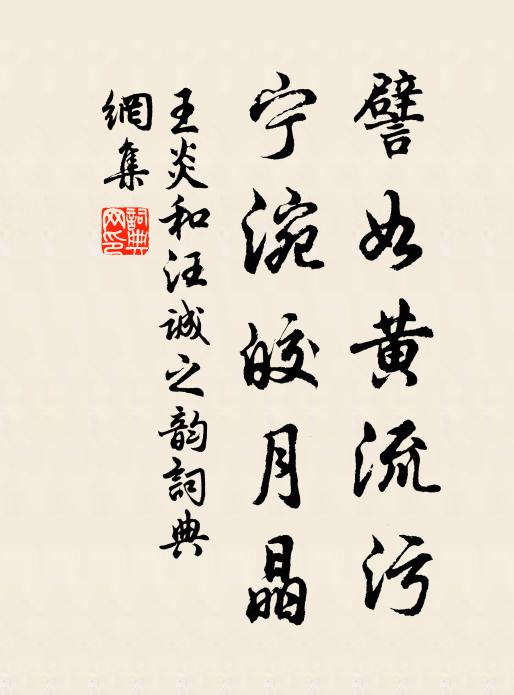 譬如黄流污
宁涴皎月晶
王炎和汪诚之韵詞典
網集
詞典網印